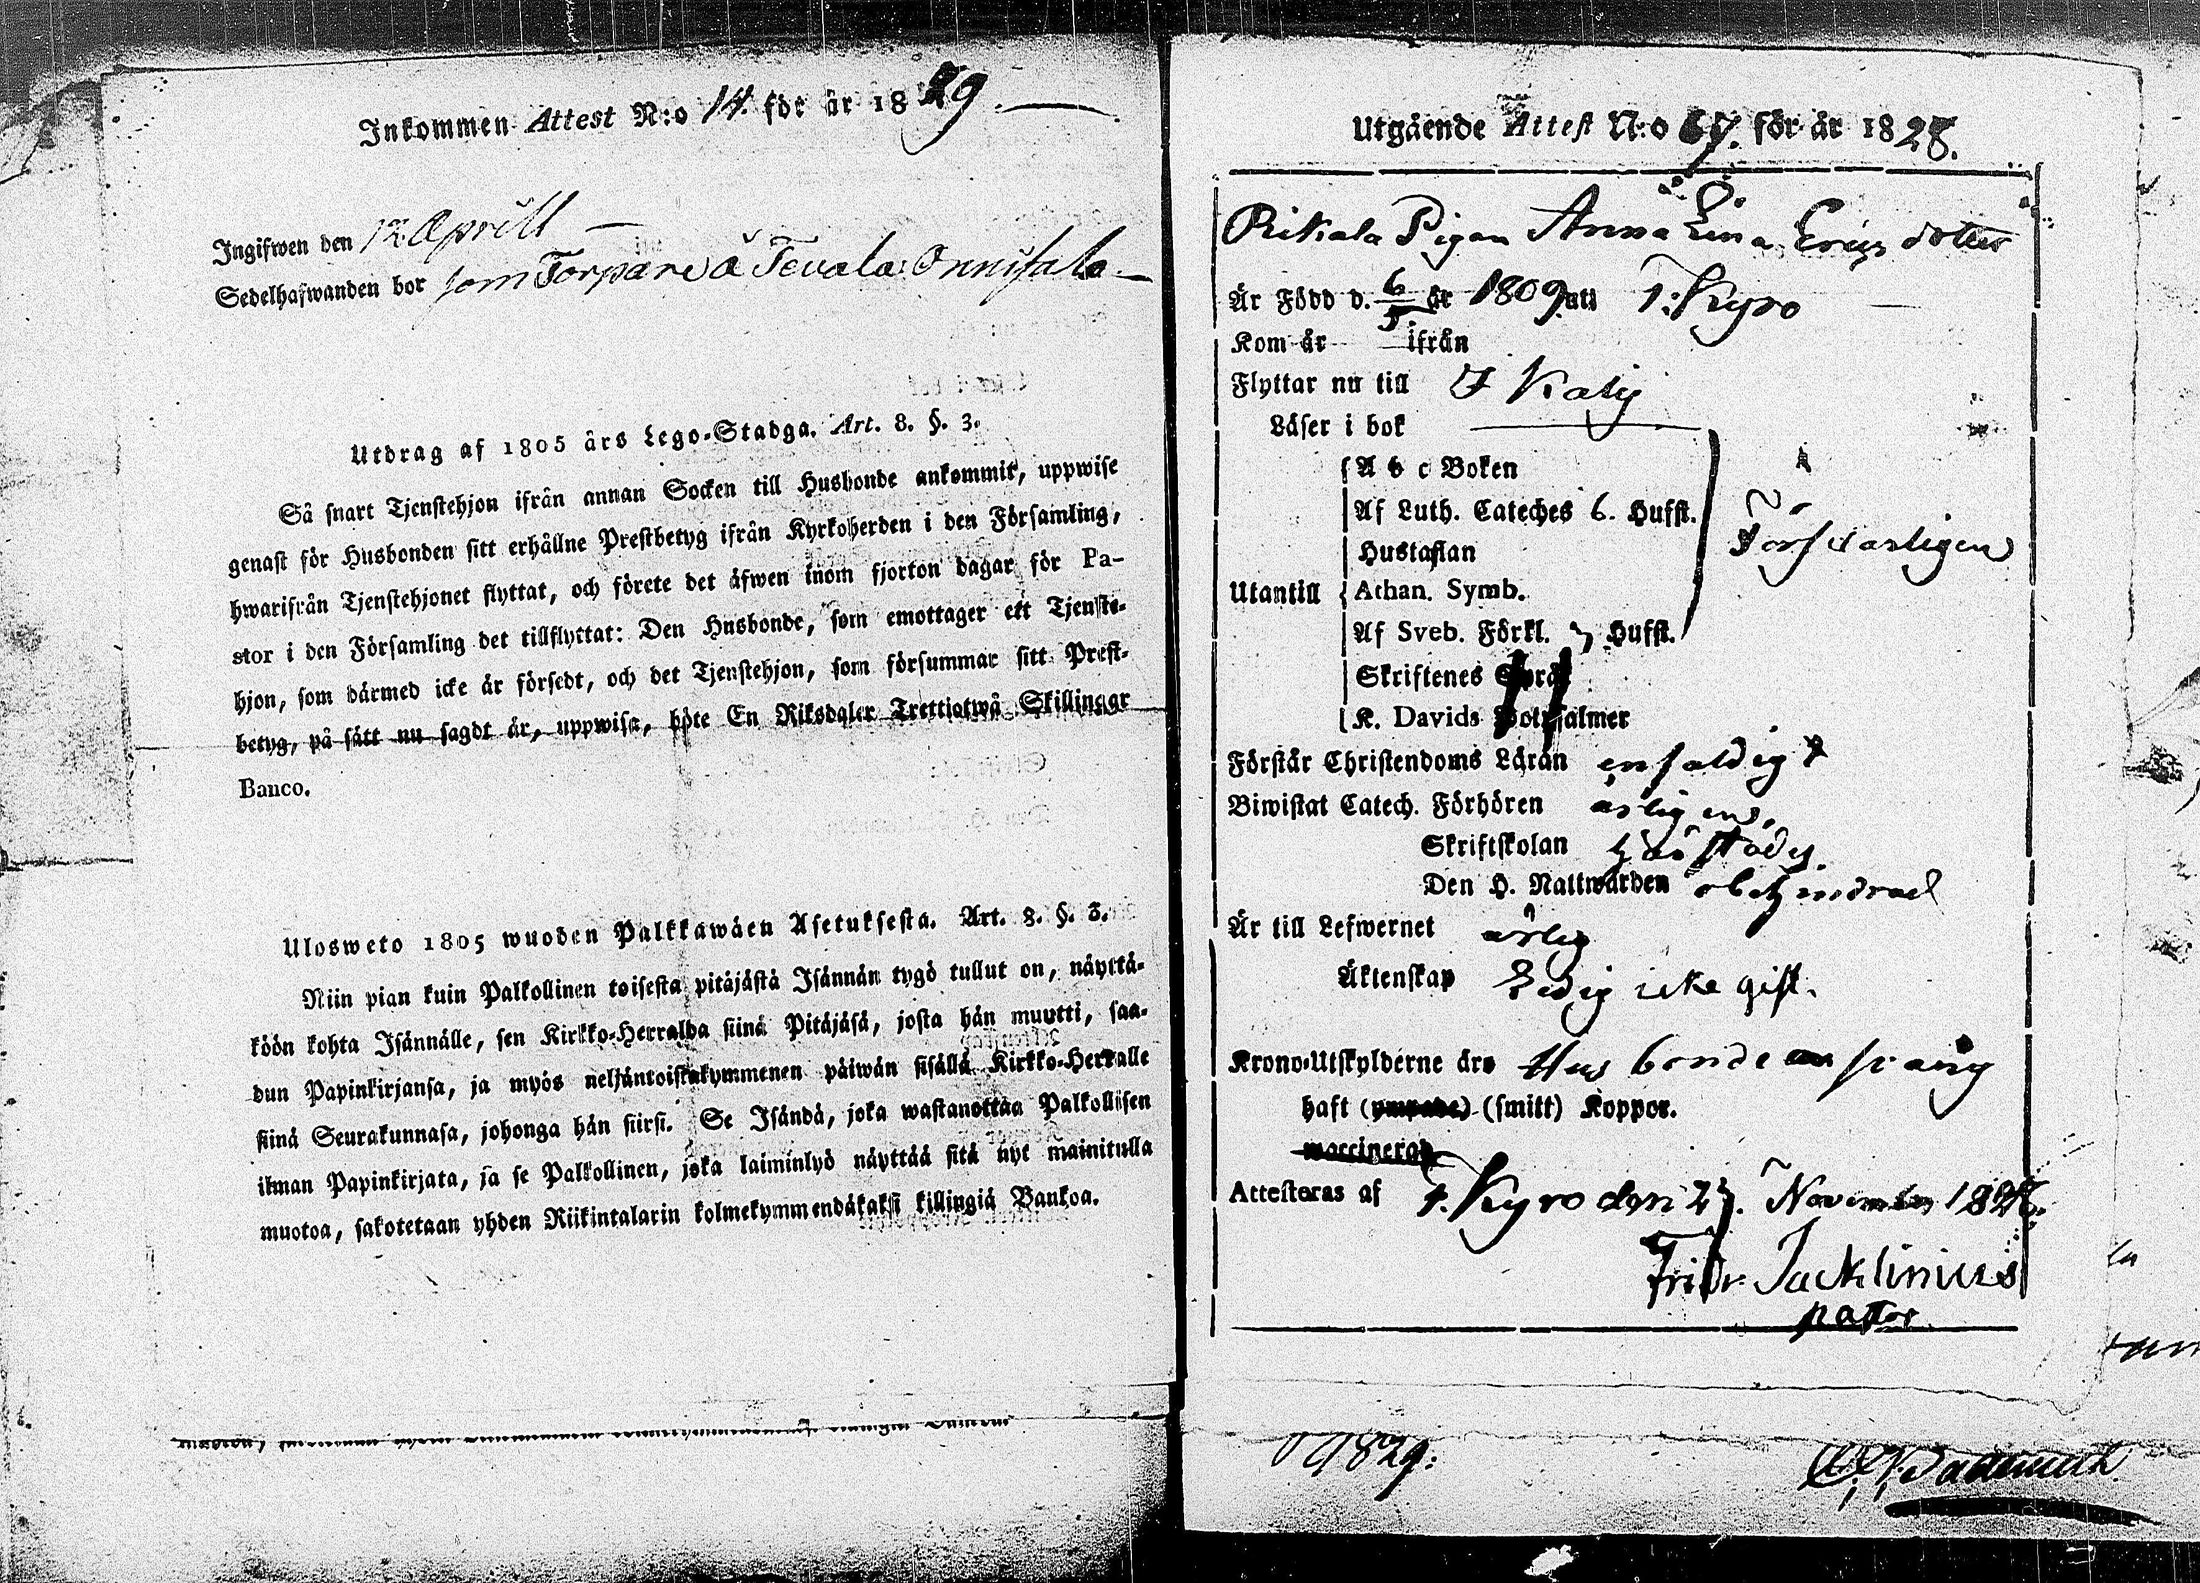 Inkommen Attest N:o 14. för år 1829.
Ingifwen den 12 Aprill
Sedelhafwanden bor som Torpare å Tevala Onnisala
Utdrag af 1805 års Lego-Stadga. Art. 8. §. 3.
Så snart Tjenstehjon ifrån annan Socken till Husbonde ankommit, uppwise
genast för Husbonden sitt erhållne Prestbetyg ifrån Kyrkoherden i den Församling,
hwarifrån Tjenstehjonet flyttat, och förete det äfwen inom fjorton dagar för Pa-
stor i den Församling det tillflyttat: Den Husbonde, som emottager ett Tjenste-
hjon, som därmed icke är försedt, och det Tjenstehjon, som försummar sitt Prest-
betyg, på sätt nu sagdt är, uppwisa, böte En Riksdaler Trettiotwå Skillingar
Banco.
Ulosweto 1805 wuoden Palkkawäen Asetuksesta. Art. 8. §. 3.
Niin pian kuin Palkollinen toisesta pitäjästä Isännän tygö tullut on, näyttä-
köön kohta Isännälle, sen Kirkko-Herralda siinä Pitäjäsä, josta hän muutti, saa-
dun Papinkirjansa, ja myös neljäntoistakymmenen päiwän sisällä Kirkko-Herralle
siinä Seurakunnasa, johonga hän siirsi. Se Isändä, joka wastanottaa Palkollisen
ilman Papinkirjata, ja se Palkollinen, joka laiminlyö näyttää sitä nyt mainitulla
muotoa, sakotetaan yhden Riikintalarin kolmekymmendäkaksi killingiä Bankoa.
Utgående Attest N:o 67. för år 1828.
Rikala Pigan Anna Lisa Ericsdotter
Är Född d. 6/5 år 1809 uti T: Kyro
Kom år ifrån
Flyttar nu till I Kalis
Läser i bok
A b c Boken
Af Luth. Cateches 6. Hufst.
Försvarligen
Hustaflan
Utantill Athan. Symb.
Af Sveb. Förkl. 7 Hufst.
Skriftenes Språk
K. Davids Botpsalmer
Förstår Christendoms Läran enfaldigt
Biwistat Catech. Förhören årligens,
Skriftskolan härstädes.
Den H. Nattwarden obehindrad
Är till Lefwernet ärlig
Äktenskap Ledig icke gift.
Krono-Utskylderne äro Husbondens swång
haft (ympade) (smitt) Koppor.
waccinerad
Attesteras af T. Kyro den 27. November 1828.
Fridr. Jacklinius
pastor
1829.